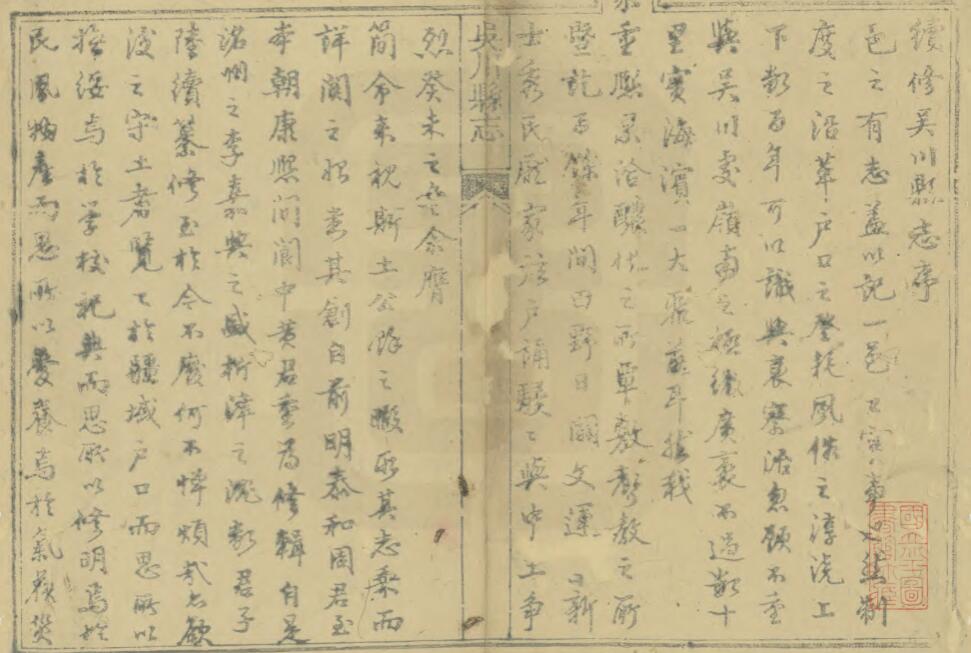 續修吳川縣志序
邑之有志蓋以記一邑之實事也然制
度之沿革戶口之登耗風俗之淳澆上
下數百年可以識興衰察治忽顧不重
與吳川處嶺南之極纖廣袤不過數十
里實海濱一大聚落耳然我
重熙累洽醲化之所覃敷聲教之所
暨訖百餘年間田野日闢文運日新
士秀民龐家弦戶誦駸駸與中土爭
吳川縣志
烈癸未之春余膺
簡命來視斯土公餘之暇取其志乘而
詳閱之北宋其創自前明泰和周君至
本朝康熙間閬中黃君重為修輯自是
洺州之李嘉興之盛析津之沈數君子
陸續纂修至於今不廢何不憚煩哉蓋欲
後之守土者覽之於疆域戶口而思所以
撫綏焉於學校祀典而思所以修明焉於
民風物產而思所以愛養焉於氣候災